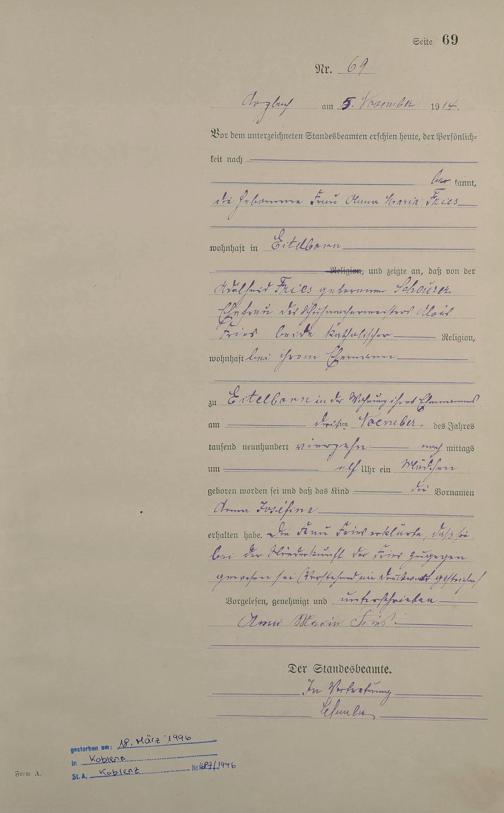 Seite 69
Nr. 69
Arzbach am 5. November 1914.
Vor dem unterzeichneten Standesbeamten erschien heute, der Persönlich-
keit nach
be kannt,
die Hebamme Frau Anna Maria Fries
wohnhaft in Eitelborn
Religion, und zeigte an, daß von der
Adelheid Fries geborenen
Ehefrau des Schuhmachermeisters Alois
Fries beide katholischer Religion,
wohnhaft bei ihrem Ehemann
zu Eitelborn in der Wohnung ihres Ehemannes
am dritten November des Jahres
tausend neunhundert vierzehn nach mittags
um elf Uhr ein Mädchen
geboren worden sei und daß das Kind die Vornamen
Anna Josefine
erhalten habe. Die Frau Fries erklärte, daß sie
bei der Niederkunft der Fries zugegen
gewesen sei. (Vorstehend ein Druckwort gestrichen)
Vorgelesen, genehmigt und unterschrieben
Anna Maria Fries.
Der Standesbeamte.
In Vertretung
gestorben am: 18. März 1996
in Koblenz
St. A. Koblenz Nr. 687/1996
Form A.